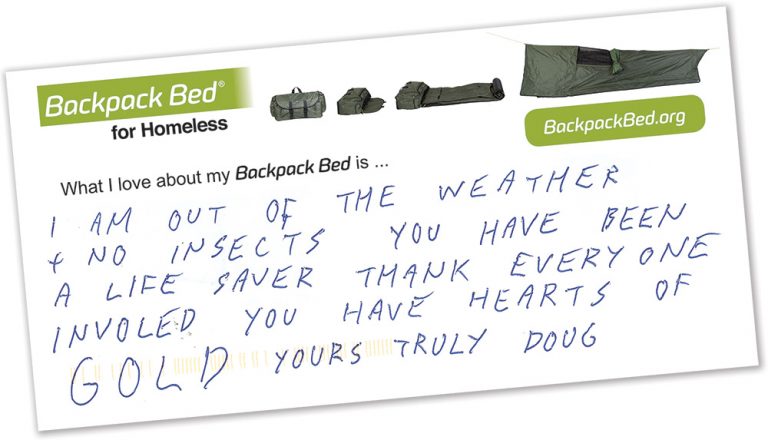 Backpack Bed®
for Homeless
BackpackBed.org
What I love about my Backpack Bed is ...
I AM OUT OF THE WEATHER
+ NO INSECTS YOU HAVE BEEN
A LIFE SAVER THANK EVERYONE
INVOLED YOU HAVE HEARTS OF
GOLD YOURS TRULY DOUG